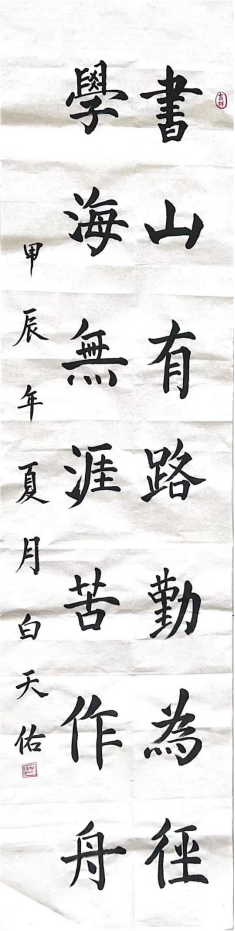 書山有路勤為徑
學海無涯苦作舟
甲辰年夏月白天佑